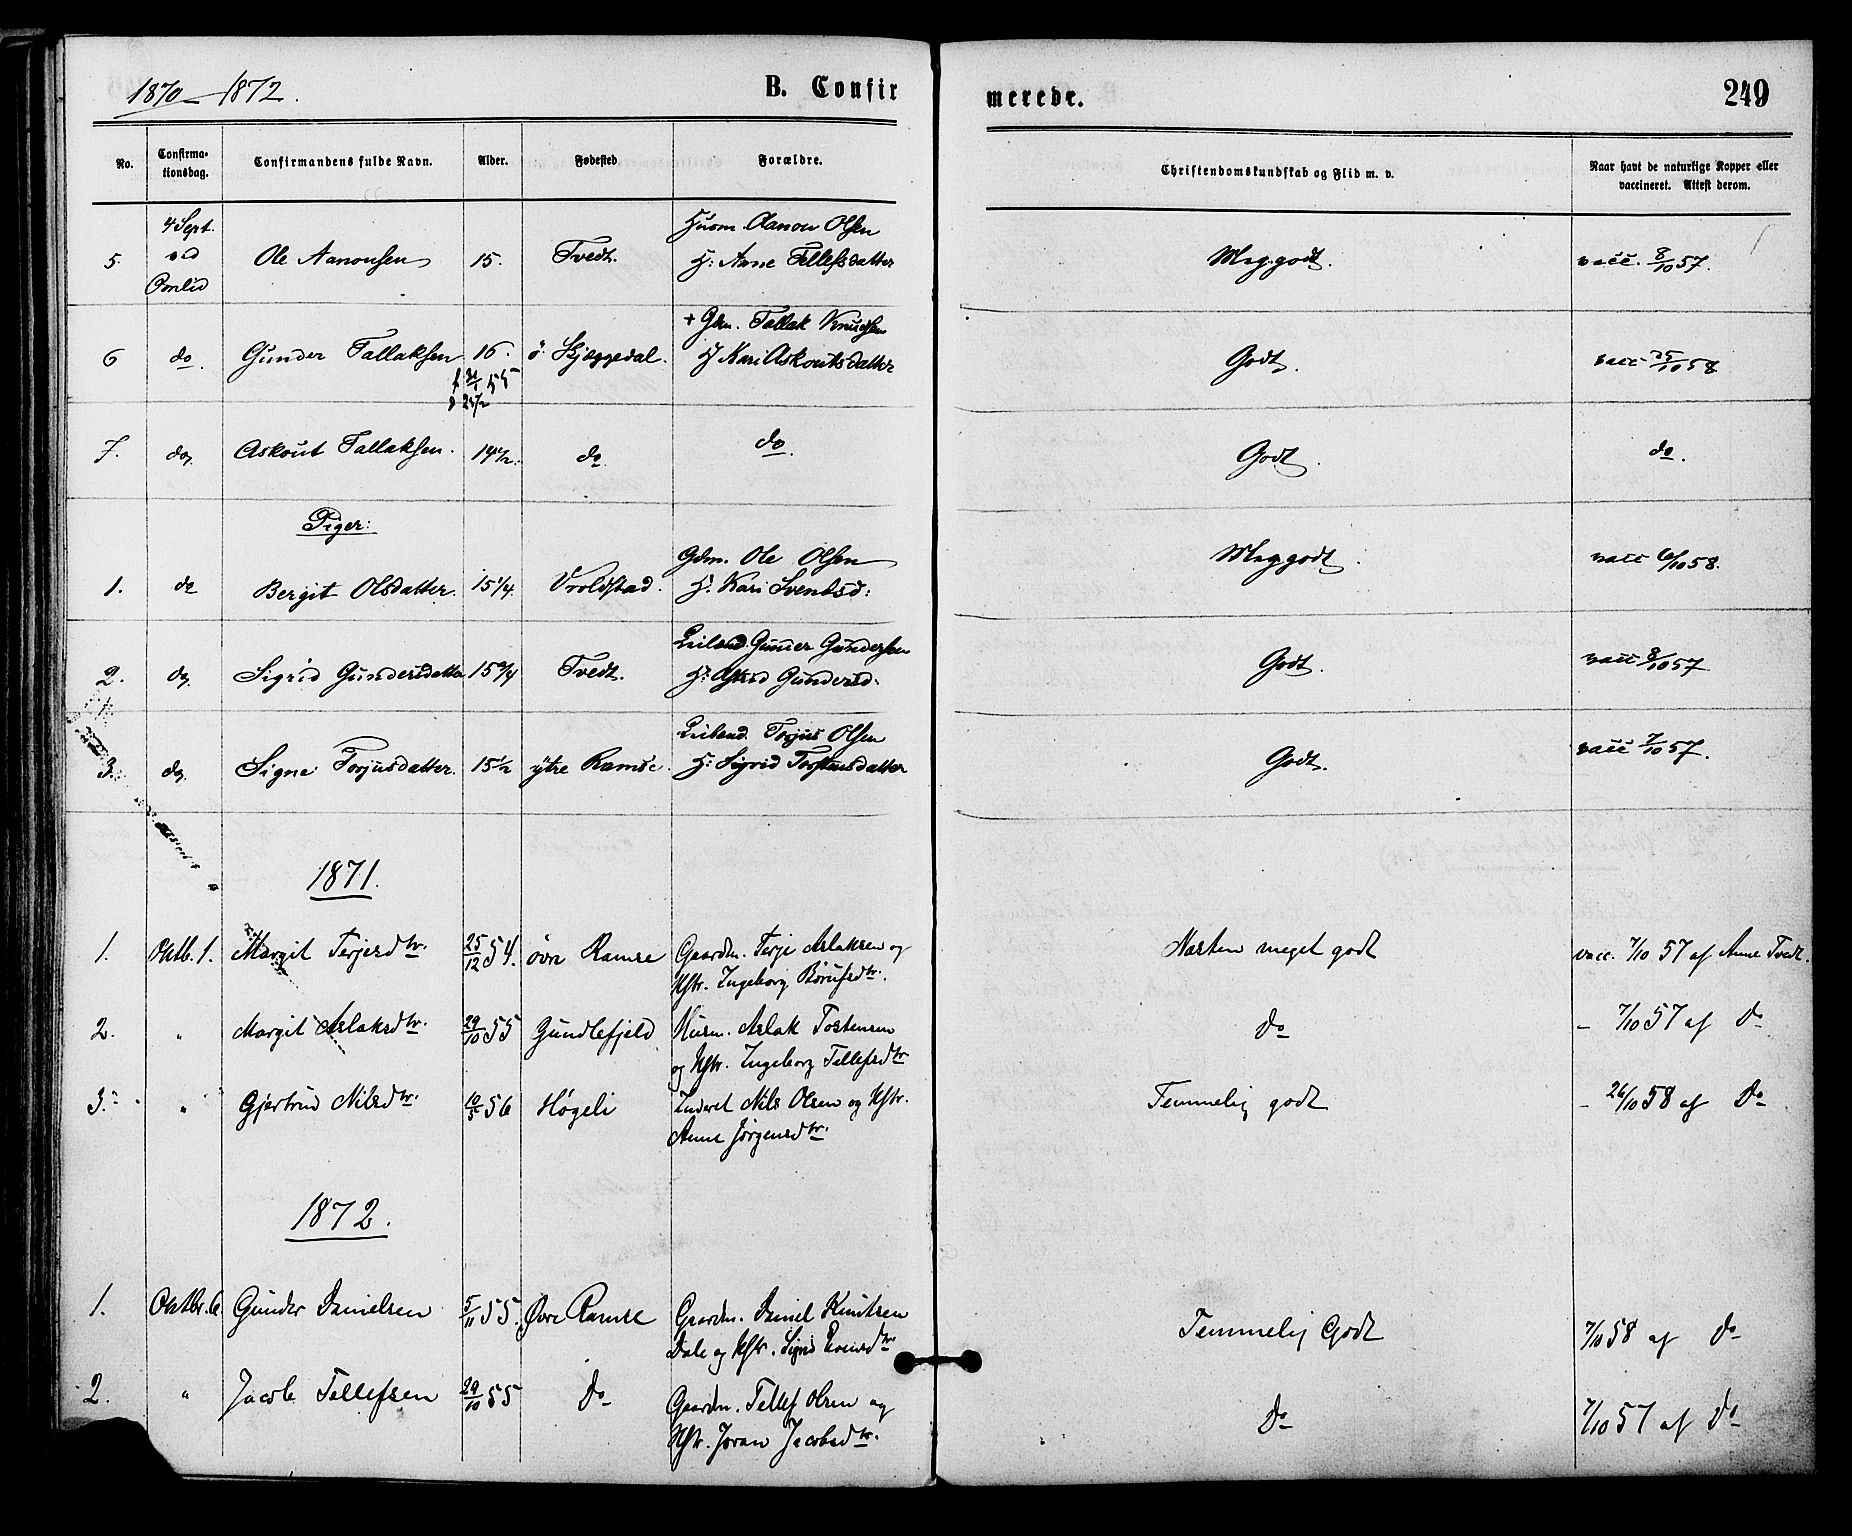 1870–1872.
B. Confir
merede.
249
No.
Confirma-
tionsdag.
Confirmandens fulde Navn.
Alder.
Fødested
Forældre.
Christendomskundskab og Flid m. v.
Naar havt de naturlige Kopper eller
vaccineret. Attest derom.
4 Sept. Husm. Aanon Olsen
5. ved Ole Aanonsen 15. Tvedt. H: Anne Tellefsdatter Meg.godt. vacc. 8/10 57.
Omlid
+ Gdm. Tallak Knudsen
6 do. Gunder Tallaksen 16. ö. Skjæggedal. H Kari Askoutsdatter Godt. vacc 25/10 58.
55
7. do, Askout Tallaksen. 14 1/2. do do. Godt. do.
Piger:
Gdm. Ole Olsen
1. do Bergit Olsdatter. 15 1/4. Vroldstad. H: Kari Svenbsd: Meg godt. vacc 6/10 58.
Leilænd. Gunder Gundersen
2. do, Sigrid Gundersdatter 15 3/4 Tvedt. H: Gundersd. Godt. vacc 8/10 57
Leilænd. Torjus Olsen
3. do, Signe Torjusdatter. 15 1/2 ytre Ramse. H: Sigrid Torstensdatter Godt. vacc 7/10 57.
1871.
1. Oktb. 1. Margit Terjesdtr. 25/12 54. övre Ramse Gaardm. Terje Aslaksen og Næsten meget godt vacc. 7/10 57 af Anne Tvedt.
Hstr. Ingeborg
2. " Margit Aslaksdtr. 29/10 55 Gundlefjeld Husm. Aslak Tostensen Do – 7/10 57 af Do
og Hstr. Ingeborg Tellefsdtr
3. " Gjertrud Nilsdtr. 10/5 56 Høgeli Inderst Nils Olsen og Hstr. Temmelig godt – 26/10 58 af Do
Anne Jörgensdtr.
1872.
1. Oktbr. 6. Gunder Danielsen 5/11 55. Øvre Ramse Gaardm. Daniel Knutsen Temmelig Godt 7/10 58 af Do
Dale og Hstr. Sigrid
2. " Jacob Tellefsen 29/10 55 Do Gaardm. Tellef Olsen og Do 7/10 57 af Do
Hstr. Joran Jacobsdtr.